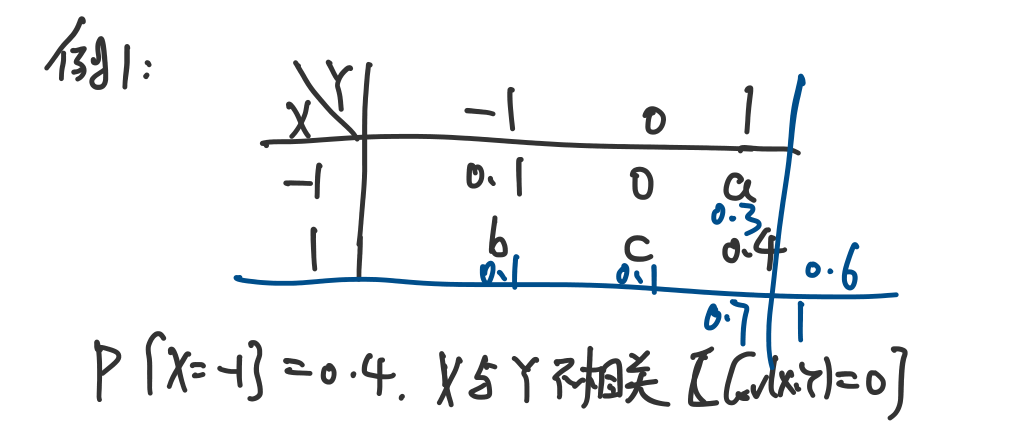 例1:
X Y -1 0 1
-1 0.1 0 a
0.3
1 b c 0.4
0.1 0.1 0.6
0.7 1
P{X=-1}=0.4. X与Y不相关【Cov(X,Y)=0】